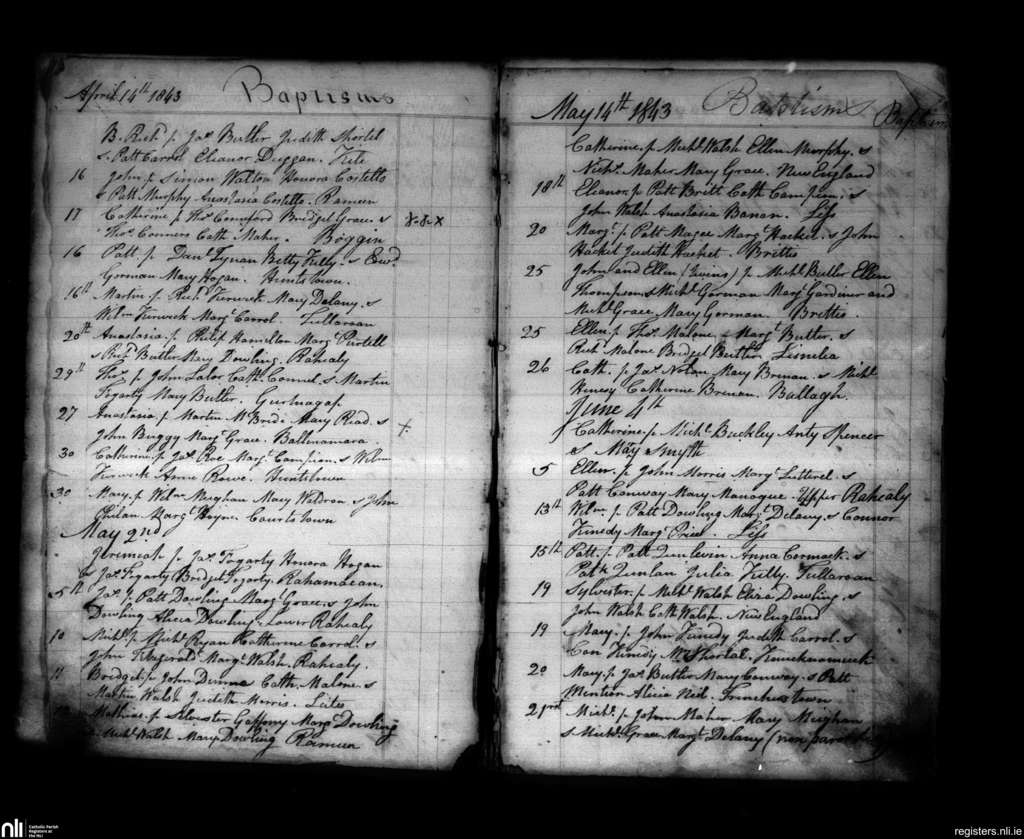 April 14th 1843 Baptisms
B. Richd p. Jas Butler Judith Shortel
s. Patt Carrol Eleanor Duggan. Kile
16 John p. Simon Walton Honora Costello
s Patt Murphy Anastasia Costello. Rameen
17 Catherine p Thos Comerford Bridget Grace. s
Thos Conners Cath Maher. Boggin
16 Patt. p. Danl Tynan Betty Tully. s Edwd
Gorman Mary Hogan. Huntstown.
16th Martin p. Richd Kerwick Mary Delany. s
Wilm Kerwick Margt Carrol. Tullaroan
20th Anastasia. p. Philip Hamelton Margt Purtell
s Richd Butler Mary Dowling. Rahealy
29th Thos p John Lalor Cath. Connel. s Martin
Fogarty Mary Butler. Gurtnagap
27 Anastasia p Martin McBride Mary Read. s
John Buggy Margt Grace. Ballinamara.
30 Catherine p Jas Roe Margt Campion. s Wilm
Kerwick Anne Rowe. Huntstown
30 Mary. p Wilm Meighan Mary Waldron. s John
Philan Margt Hoyne. Courtstown
May 2nd
Jeremiah p Jas Fogarty Honora Hogan
Jas Fogarty Bridget Fogarty. Rahamacan.
5th Jas p Patt Dowling Margt Grace. s John
Dowling Alicia Dowling. Lower Rahealy
10 Michl p Michl Ryan Catherine Carrol. s
John Fitzgerald Margt Walsh. Rahealy.
11 Bridget. p John Dunne Cath. Malone. s
Martin Walsh Judith Morris. Liss
Mathias. p Silvester Gaffony Margt Dowling
Michl Walsh Mary Dowling Rameen
May 14th 1843 Batptisms Baptism
Catherine. p Michl Walsh Ellen Murphy. s
Nichs Maher Mary Grace. New England
18th Eleanor. p Patt Britt Cath Campion. s
John Walsh Anastasia Banan. Liss
20 Margt p Patt Magee Margt Hacket. s John
Hacket Judith Hacket. Brittis
25 John and Ellen (twins) p Michl Butler Ellen
Thompson. s Michl Gorman Margt Gardiner and
Michl Grace Mary Gorman. Brittis.
25 Ellen p Thos Malone Margt Butler. s
Richd Malone Bridget Butler. Lisnalea
26 Cath. p Jas Nolan Mary Brenan. s Michl
Henesy Catherine Brenan. Ballagh.
June 4th
Catherine. p Michl Buckley Anty Spencer
s May Smyth
5 Ellen. p John Morris Margt Litterel. s
Patt Conway Mary Manogue. Upper Rahealy
13th Wilm. p Patt Dowling Margt Delany. s Connor
Kinedy Margt Price. Liss
15th Patt. p Patt Quinlevin Anna Cormack. s
Patk Qunlan Julia Tully. Tullaroan
19 Sylvester. p Michl Walsh Eliza Dowling. s
John Walsh Cath Walsh. New England
19 Mary. p John Kinedy Judith Carrol. s
Con Kinedy Shortal. Knucknameuck
20 Mary. p Jas Butler Mary Conway. s Patt
Minton Alicia Neil. Frenchestown
21rst Michl p John Maher Mary Meighan
s Michl Grace Margt Delany (non paroch
nli Catholic Parish
Registers at
the NLI
registers.nli.ie